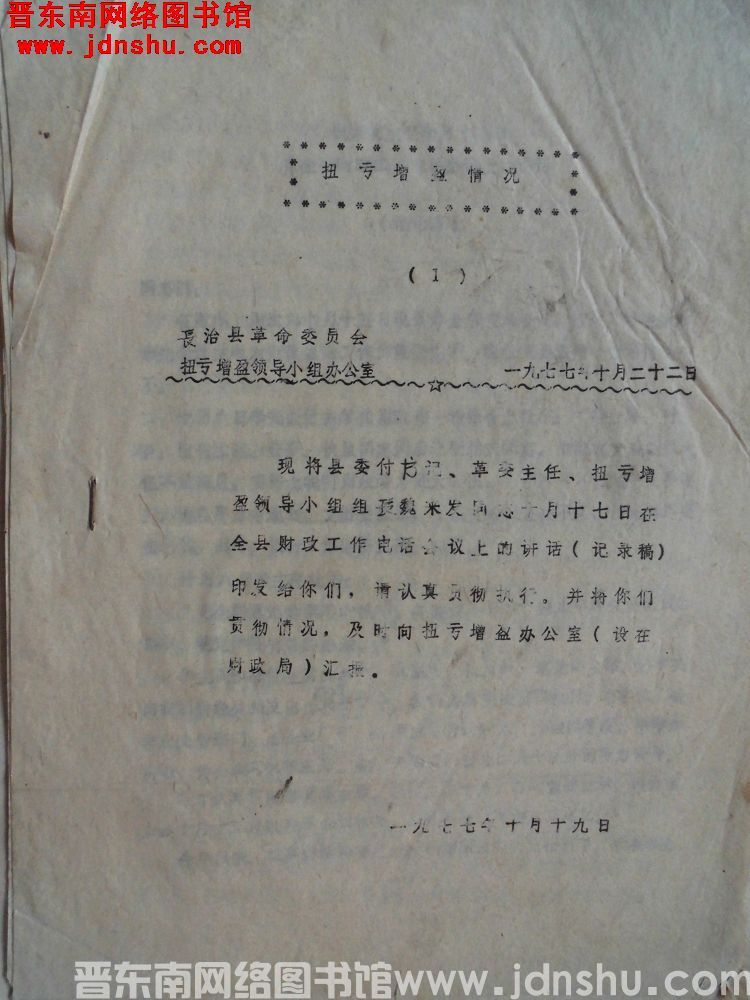 晋东南网络图书馆
www.jdnshu.com
扭亏增盈情况
(1)
長治县革命委员会
扭亏增盈领导小组办公室 一九七七年十月二十二日
现将县委付书记、革委主任、扭亏增
盈领导小组组長魏来发同志十月十七日在
全县财政工作电话会议上的讲话(记录稿)
印发给你们,请认真贯彻执行。并将你们
贯彻情况,及时向扭亏增盈办公室(设在
财政局)汇报。
一九七七年十月十九日
晋东南网络图书馆www.jdnshu.com